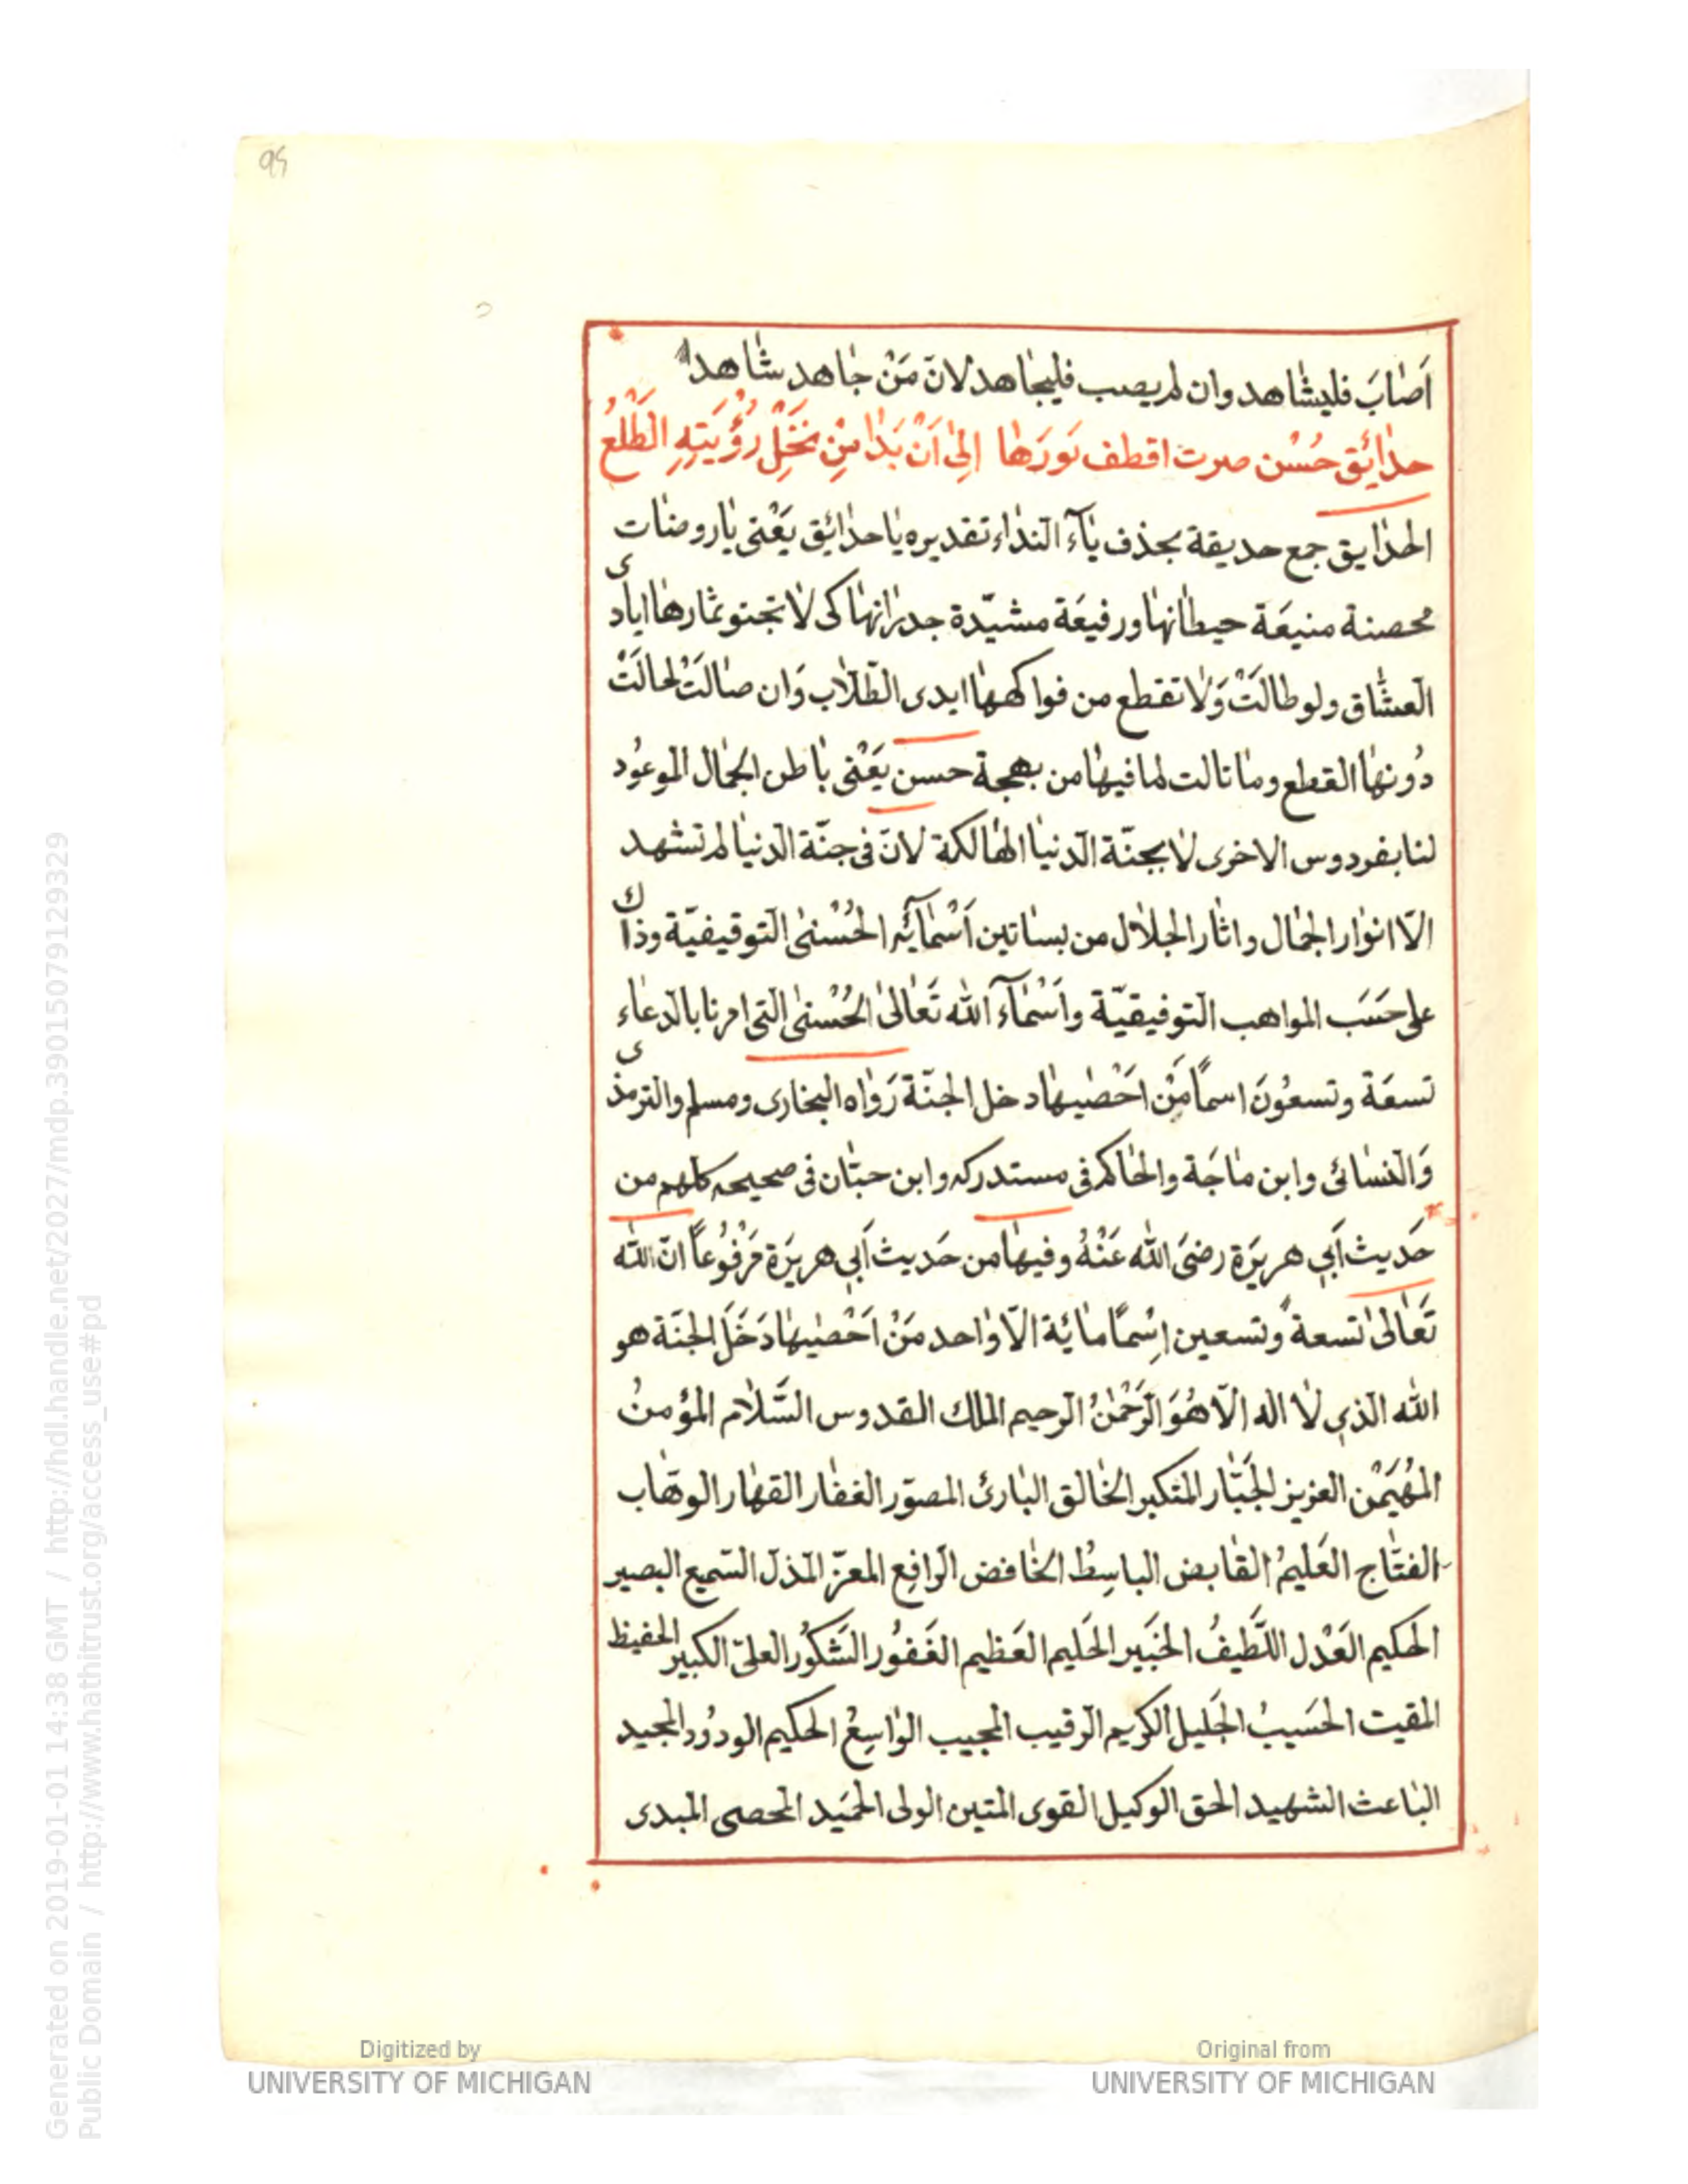 95
اَصٰابَ فليشٰاهد وان لم يصب فليجٰاهد لانّ مَنْ جٰاهد شٰاهد
حدٰائِق حُسْن صرت اقطف نَورَهٰا اِلىٰ اَنْ بَدٰا مِنْ نَخْلِ رُؤْيَتِهِ الطَّلْعُ
الحدٰايق جمع حديقة بحذف يٰآء النداء تقديره يٰا حدٰائِق يَعْنى يٰا روضٰات
محصنة منيعَة حيطٰانهٰا ورفيعَة مشيّدة جدرٰانهٰا كى لٰا تجتنو ثمٰارهٰا ايٰادى
العشّٰاق ولو طالَتْ وَلٰا تقطع من فواكههٰا ايدى الطّلّٰاب وَان صٰالَتْ لحالَتْ
دُونهٰا القطع ومٰا نالت لما فيهٰا من بهجة حسن يَعْنى بٰاطن الجمٰال الموعُود
لنا بفردوس الاخرى لٰا بجنّة الدنيٰا الهٰالكة لانّ فى جنّة الدنيٰا لم تشهد
الّا انوٰار الجمٰال واثٰار الجلٰال من بسٰاتين اَسْمٰآئِه الحُسْنىٰ التوقيفيّة وذٰاك
على حَسَب المواهب التوفيقيّة واَسْمٰآء الله تَعٰالىٰ الحُسْنىٰ التى امرنا بالدعٰاء
تسعَة وتسعُونَ اسمًا مَنْ اَحْصٰيهٰا دخل الجنّة رَوٰاه البخارى ومسلم والترمذى
وَالنسٰائى وابن مٰاجَة والحٰاكم فى مستدركه وابن حبّٰان فى صحيحه كلهم من
حَديث اَبى هريرَة رضىَ الله عَنْهُ وفيهٰا من حَديث اَبى هريرَة مَرْفُوعًا انّ الله
تَعٰالىٰ تسعة وتسعين اِسْمًا مٰائة الّا وٰاحد مَنْ اَحْصٰيهٰا دَخَلَ الجنّة هو
الله الذى لٰا اله الّا هُوَ الرَّحْمٰنُ الرحيم الملك القدوس السَّلٰام المؤمنُ
المُهَيْمن العزيز الجَبّٰار المتكبر الخٰالق البٰارئ المصوّر الغفٰار القهٰار الوهّٰاب
الفتّٰاح العَليمُ القٰابض الباسِطُ الخٰافض الرافع المعزّ المذلّ السّميع البصير
الحكيم العَدْل اللَّطيفُ الخبَير الحَليم العَظيم الغَفُور الشكُور العلىّ الكبير الحفيظ
المقيت الحَسَيبُ الجَليل الكريم الرقيب المجيب الوٰاسِعُ الحكيم الودُود المجيد
البٰاعث الشهيد الحق الوكيل القوى المتين الولى الحمَيد المحصى المبدى
Digitized by
UNIVERSITY OF MICHIGAN
Original from
UNIVERSITY OF MICHIGAN
Generated on 2019-01-01 14:38 GMT / http://hdl.handle.net/2027/mdp.39015079129329
Public Domain / http://www.hathitrust.org/access_use#pd